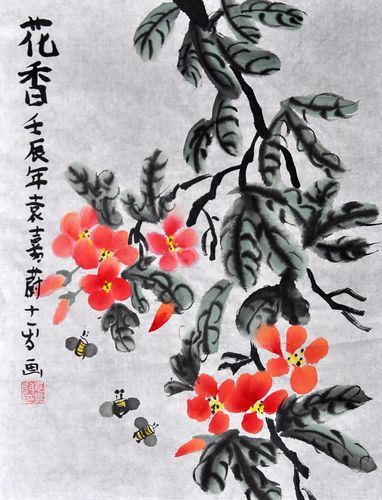 花香壬辰年袁嘉蔚十一岁画